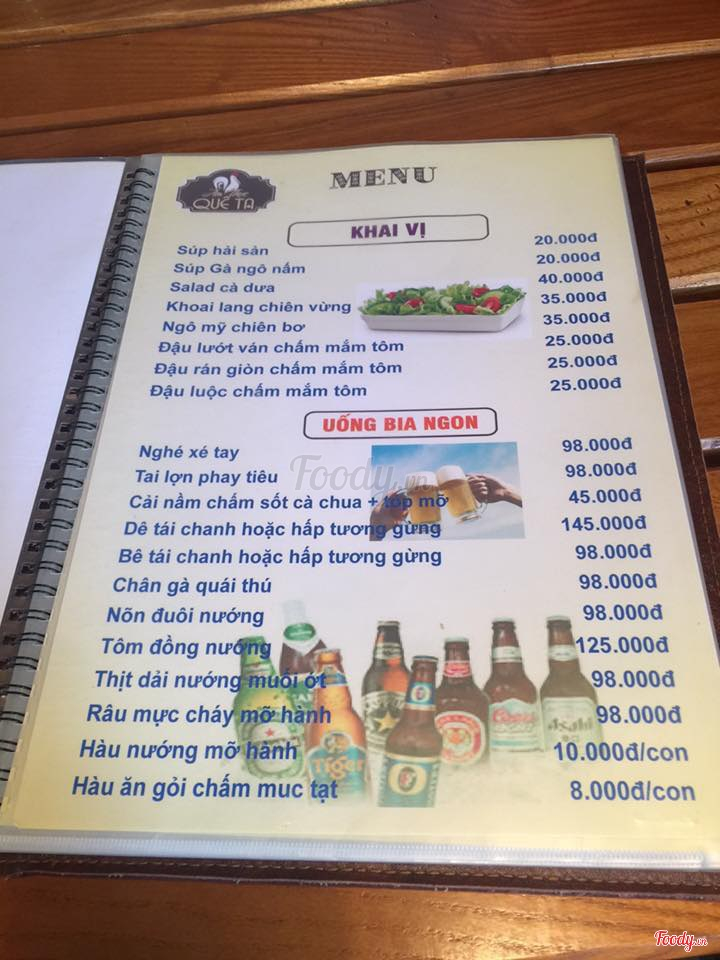 QUÊ TA
MENU
KHAI VỊ
Súp hải sản 20.000đ
Súp Gà ngô nấm 20.000đ
Salad cà dưa 40.000đ
Khoai lang chiên vừng 35.000đ
Ngô mỹ chiên bơ 35.000đ
Đậu lướt ván chấm mắm tôm 25.000đ
Đậu rán giòn chấm mắm tôm 25.000đ
Đậu luộc chấm mắm tôm 25.000đ
UỐNG BIA NGON
Nghé xé tay 98.000đ
Tai lợn phay tiêu 98.000đ
Foody.vn
Cải nầm chấm sốt cà chua + tóp mỡ 45.000đ
Dê tái chanh hoặc hấp tương gừng 145.000đ
Bê tái chanh hoặc hấp tương gừng 98.000đ
Chân gà quái thú 98.000đ
Nõn đuôi nướng 98.000đ
Tôm đồng nướng 125.000đ
Thịt dải nướng muối ớt 98.000đ
Râu mực cháy mỡ hành 98.000đ
Hàu nướng mỡ hành 10.000đ/con
Hàu ăn gỏi chấm muc tạt 8.000đ/con
Tiger
Coors
Asahi
Foody.vn